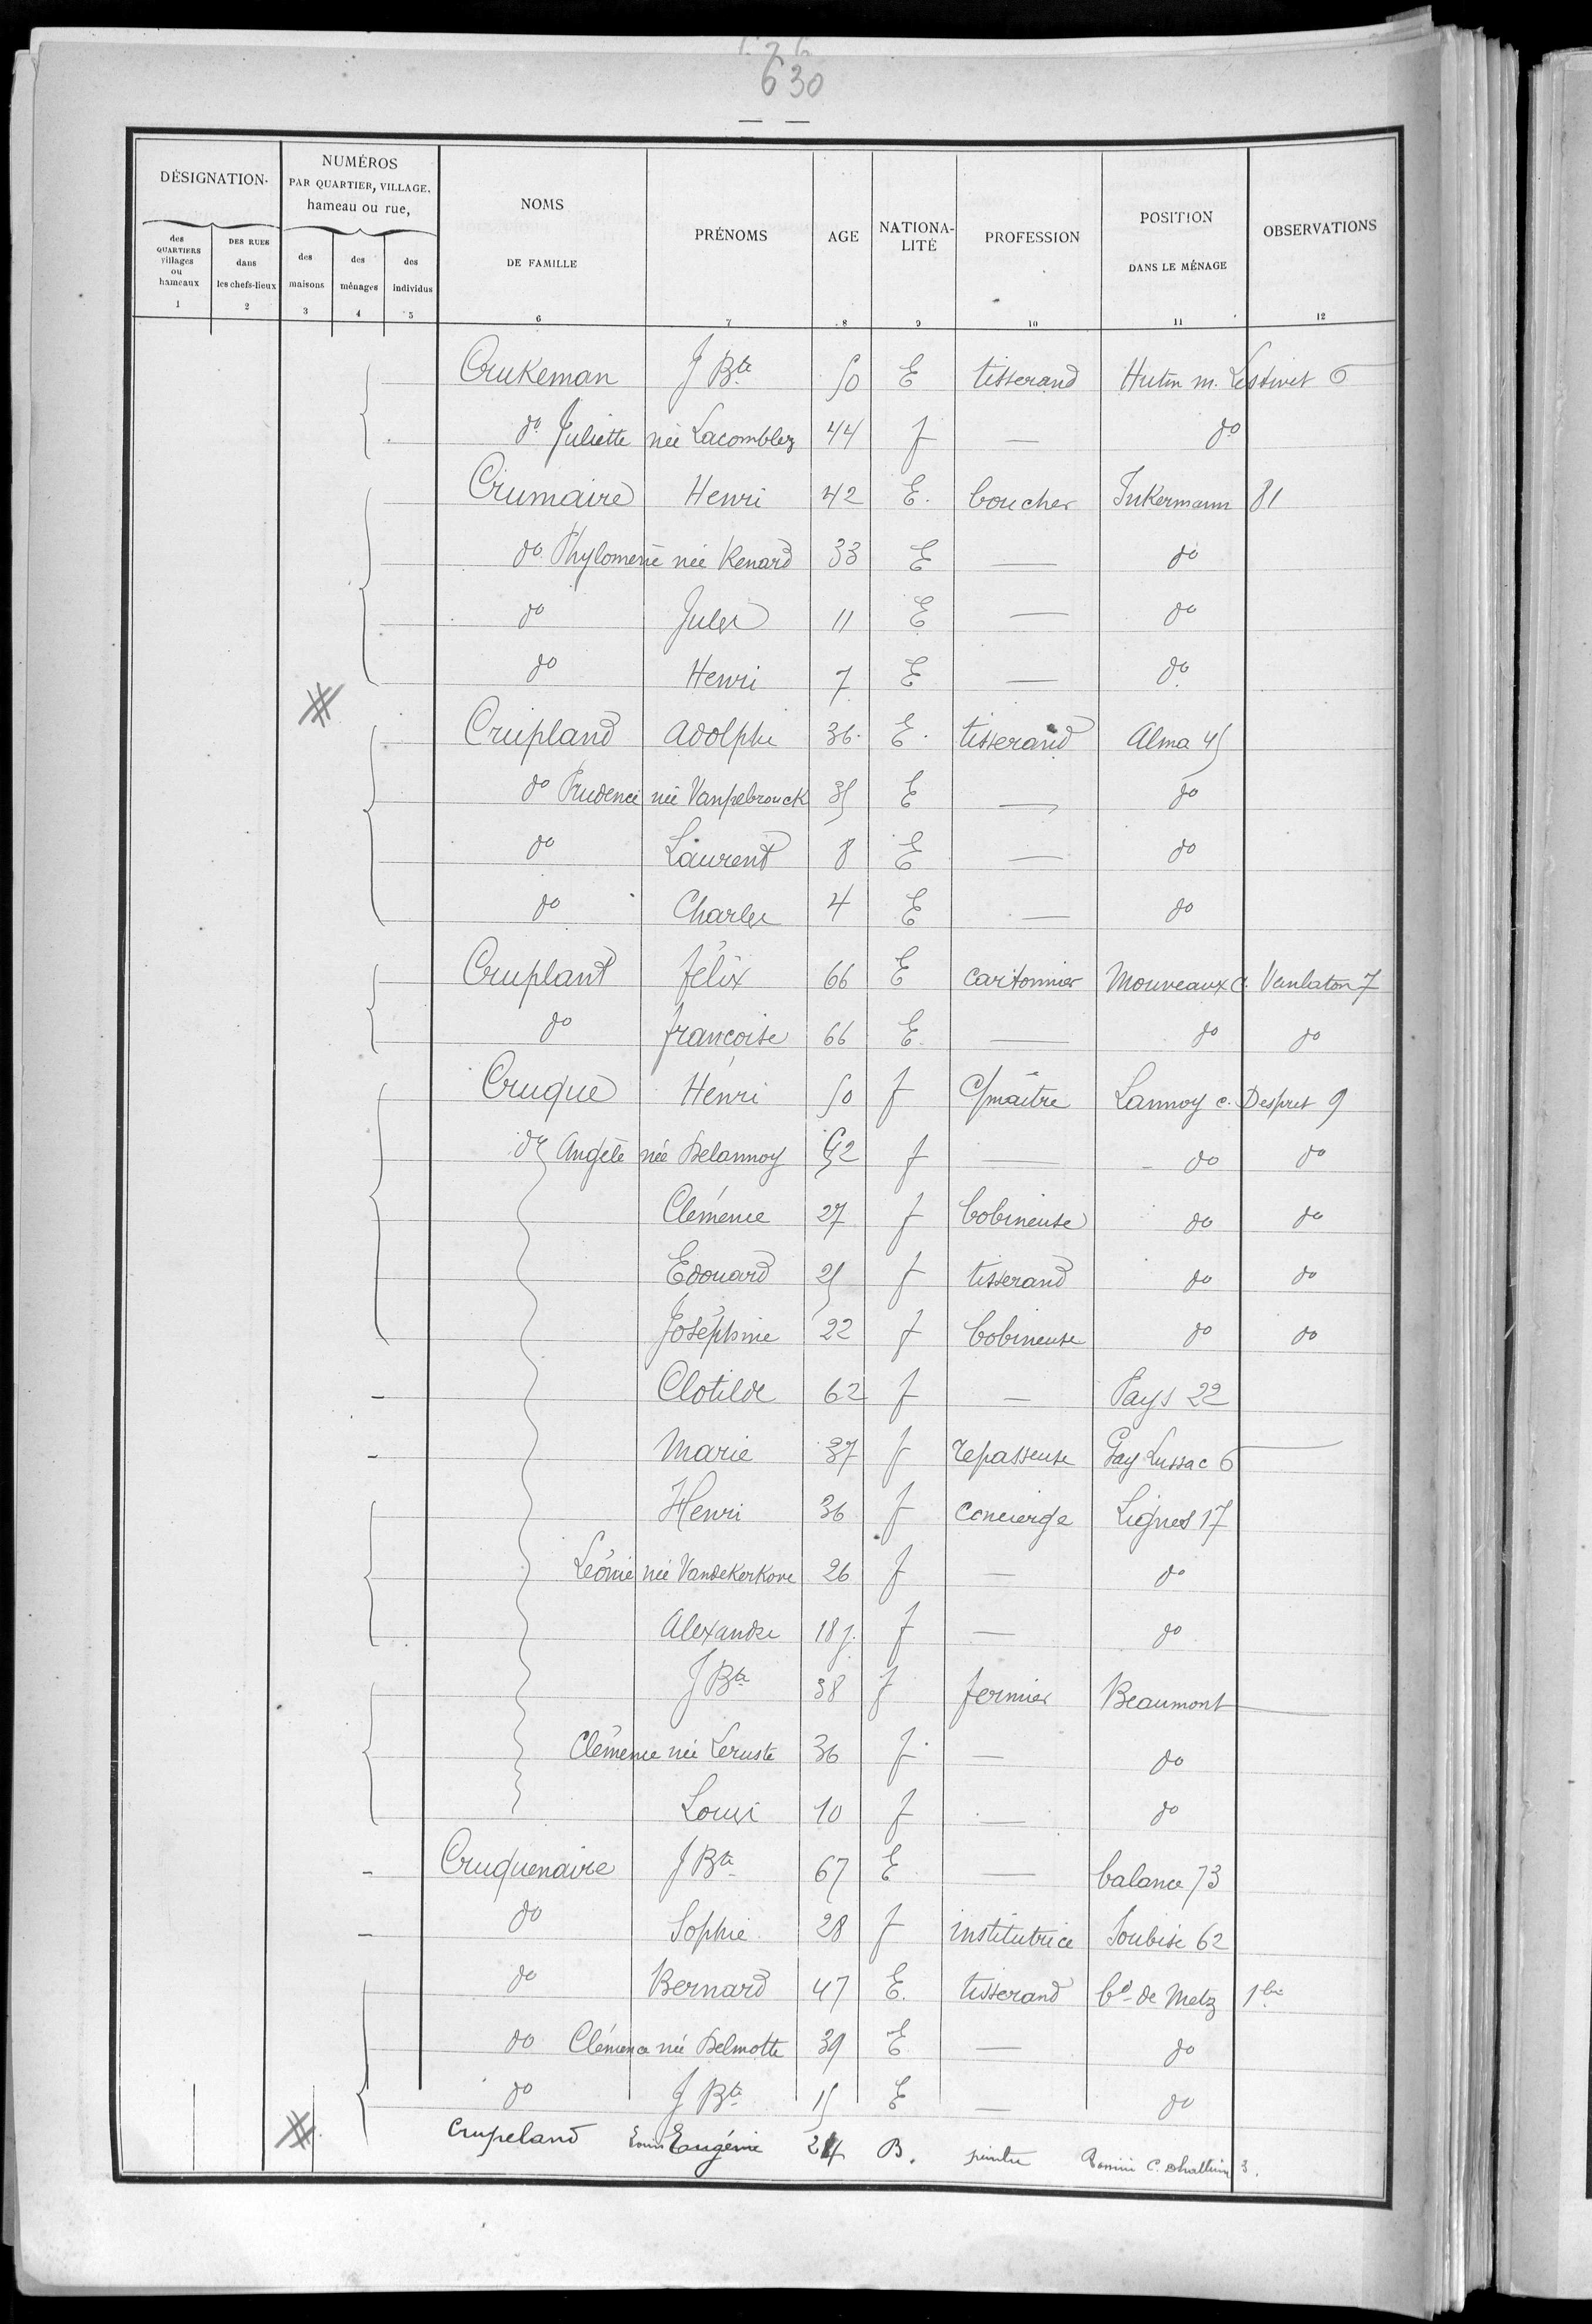 630
DÉSIGNATION.
NUMÉROS
PAR QUARTIER, VILLAGE,
hameau ou rue,
NOMS
DE FAMILLE
PRÉNOMS
AGE
NATIONA-
LITÉ
PROFESSION
POSITION
DANS LE MÉNAGE
OBSERVATIONS
des
QUARTIERS
villages
ou
hameaux
DES RUES
dans
les chefs-lieux
des
maisons
des
ménages
des
individus
1 2 3 4 5 6 7 8 9 10 11 12
Crukeman J Bte 50 E tisserand Hutin m. 6
do Juliette née Lacomblez 44 f — do
Crumaire Henri 42 E. boucher Inkermann 81
do Phylomene née Renard 33 E — do
do Jules 11 E — do
do Henri 7 E — do
Crupland Adolphe 36 E. tisserand Alma 45
do Prudence née Vanpebrouck 35 E — do
do Laurent 8 E — do
do Charles 4 E — do
Cruplant félix 66 E cartonnier Mouveaux c. 7
do françoise 66 E. — do do
Cruque Henri 50 f C/maitre Lannoy c. Despret 9
do Angèle née Delannoy 52 f — do do
Clémence 27 f bobineuse do do
Edouard 25 f tisserand do do
Joséphine 22 f bobineuse do do
Clotilde 62 f — Pays 22
Marie 37 f repasseuse Gay Lussac 6
Henri 36 f concierge Lignes 17
Léonie née Vandekerkove 26 f — do
Alexandre 18 j. f — do
J Bte 38 f fermier Beaumont
Clémence née Leruste 36 f — do
Louis 10 f — do
Cruquenaire J Bte 67 E — balance 73
do Sophie 28 f institutrice Soubise 62
do Bernard 47 E. tisserand bd de Metz 1bis
do Clémence née Delmotte 39 E — do
do J Bte 15 E — do
Crupeland Eugénie 24 B. peintre C. Dhalluin 3.